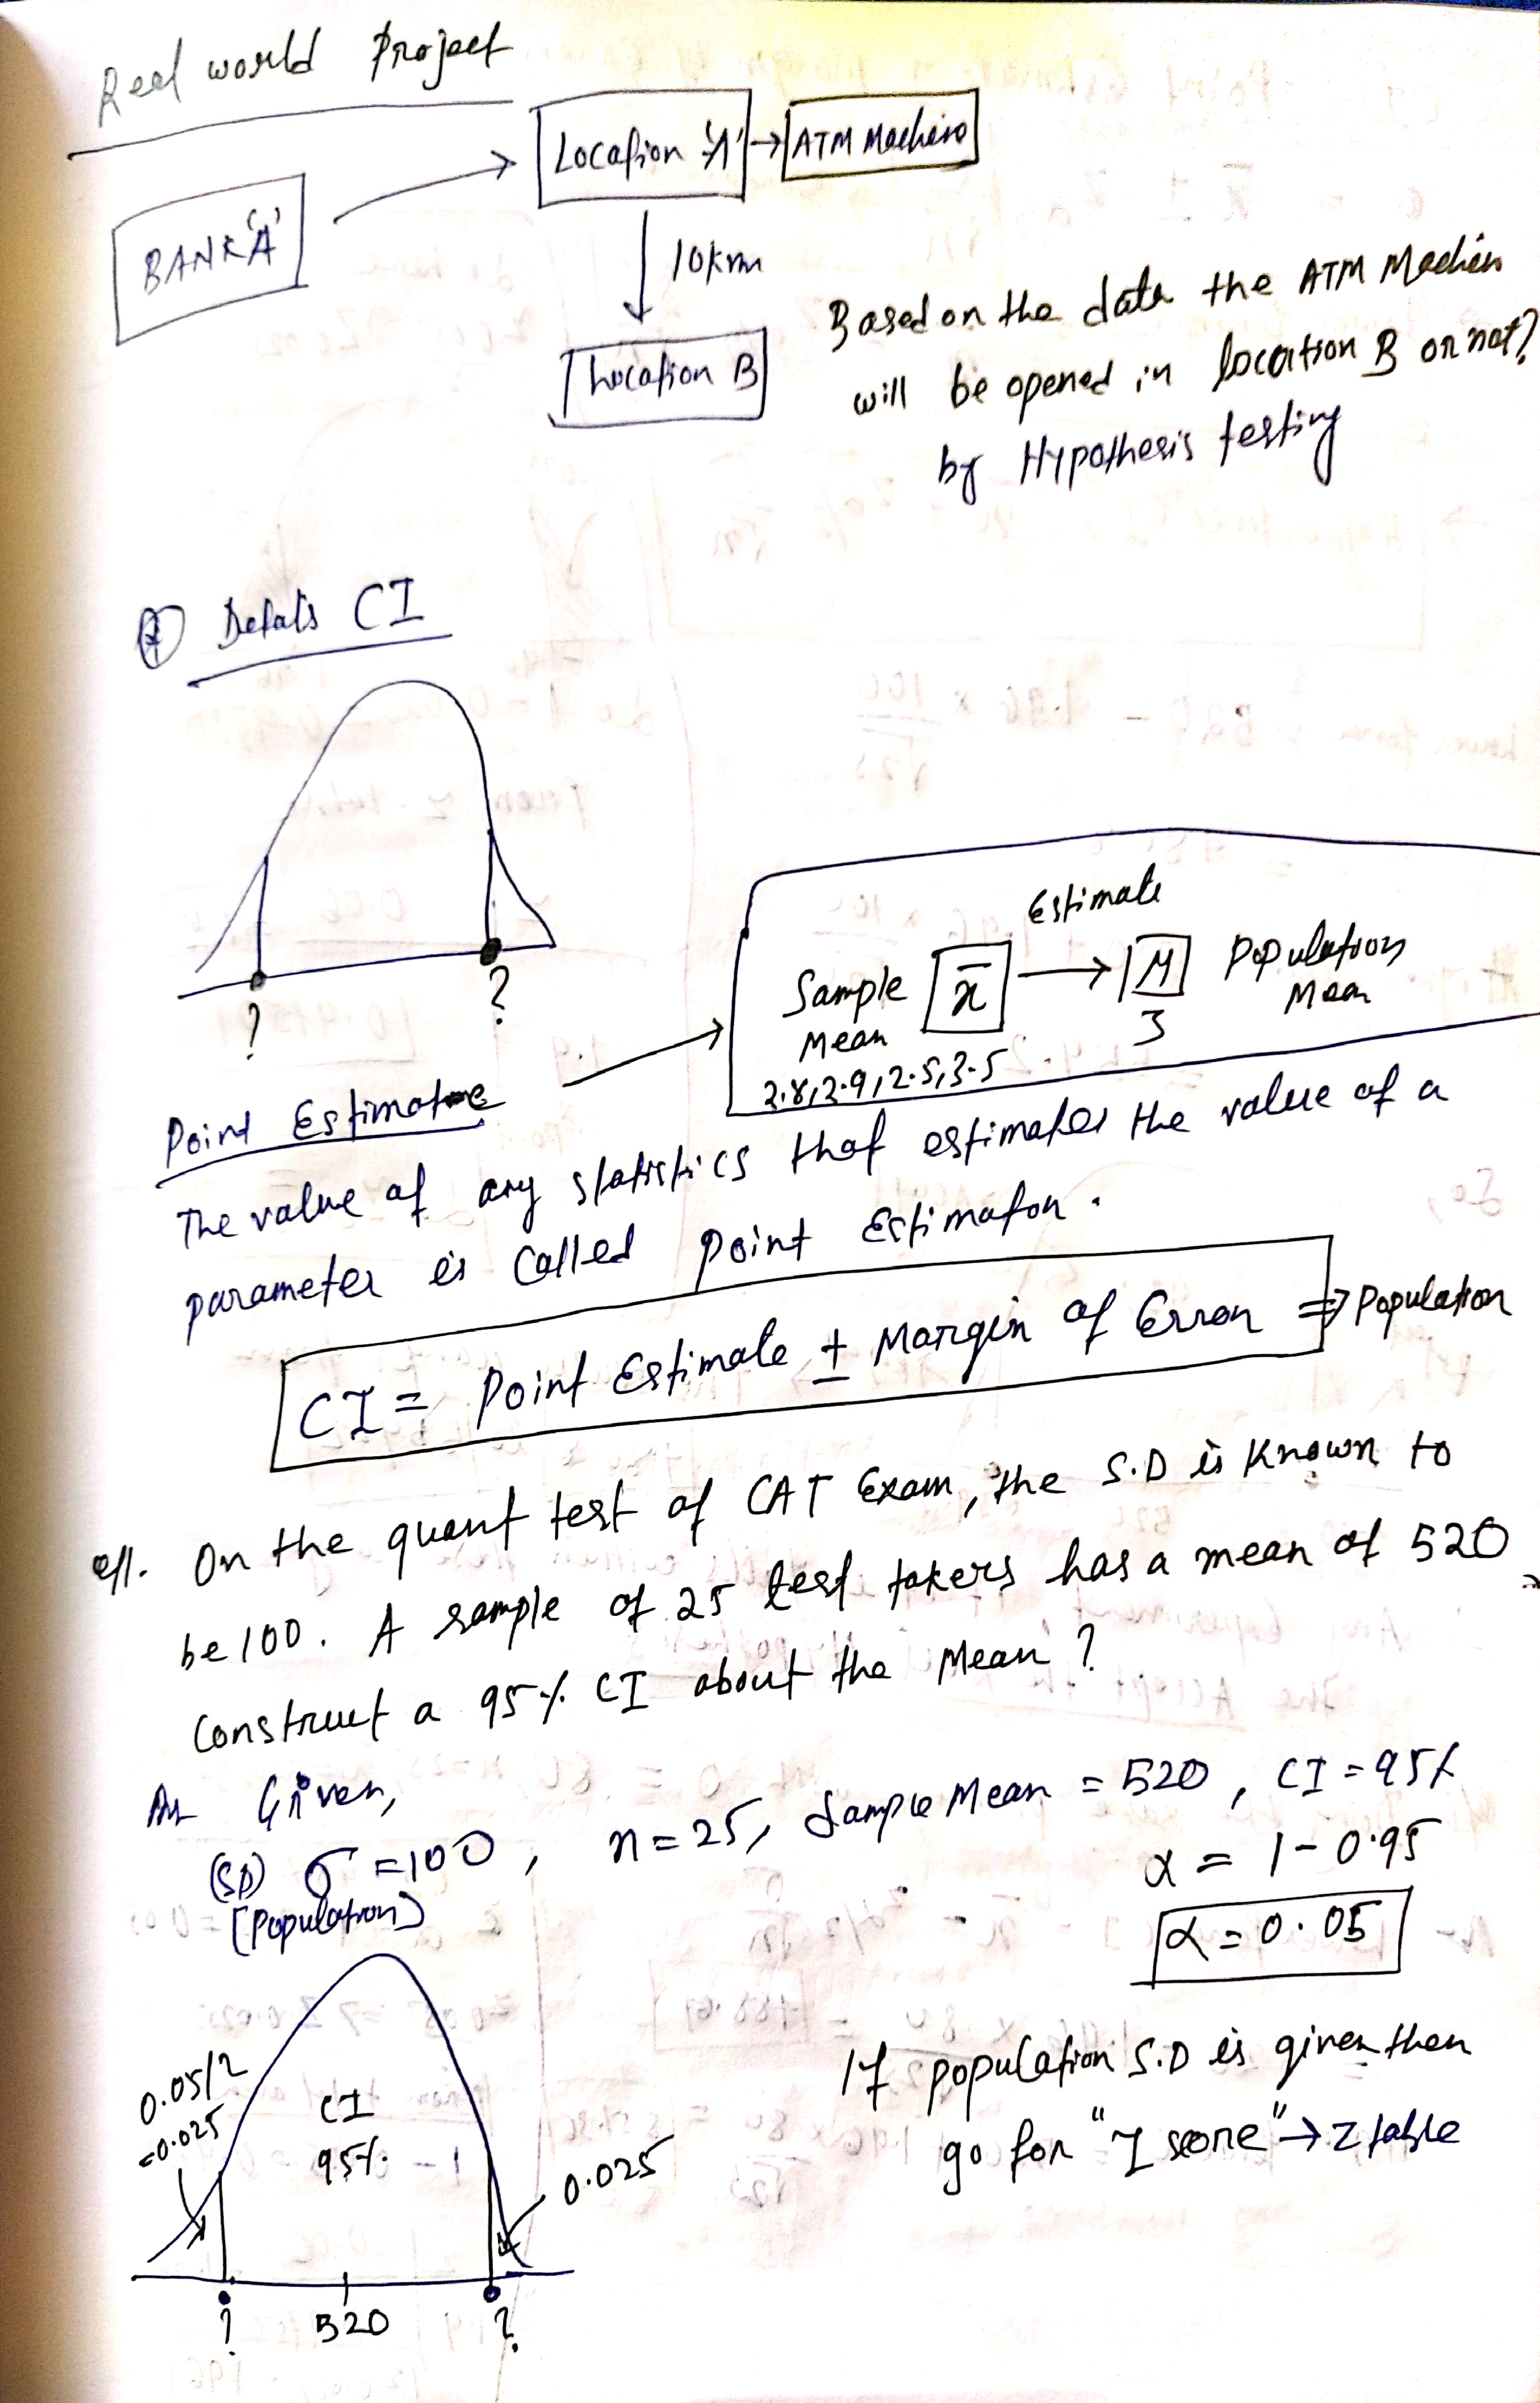 Real world Project
BANK 'A'
Location 'A' → ATM Machine
10km
Location B
Based on the data the ATM Machin
will be opened in location B or not?
by Hypothesis testing
Details CI
? ?
Point Estimate
Estimate
Sample Mean x̄ → μ Population Mean
3
2.8, 2.9, 2.5, 3.5
The value of any statistics that estimates the value of a
parameter is called point Estimator.
CI = Point Estimate ± Margin of Error ⇒ Population
On the quant test of CAT Exam, the S.D is known to
be 100. A sample of 25 test takers has a mean of 520
construct a 95% CI about the Mean ?
Given,
(SD) σ = 100, n = 25, Sample Mean = 520, CI = 95%
[Population]
α = 1 - 0.95
α = 0.05
0.05/2
=0.025
CI
95%
0.025
? 520 ?
If population S.D is given then
go for "Z score" → Z table